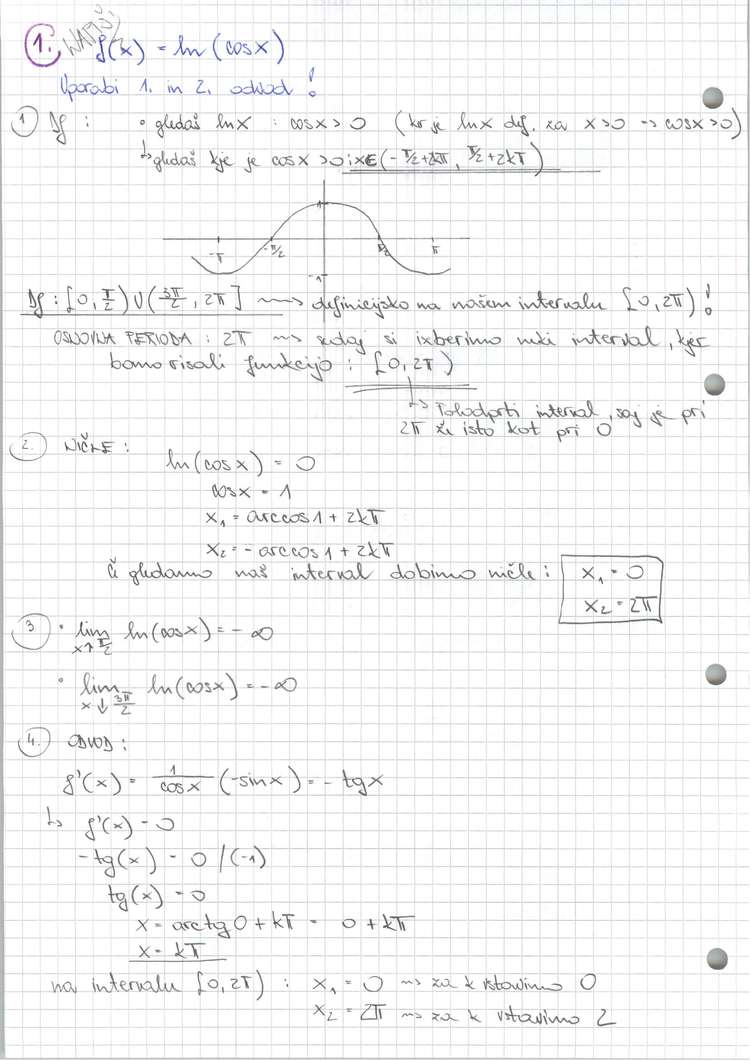 1. NARIŠI f(x) = ln (cosx)
Uporabi 1. in 2. odvod !
1 Df : • gledaš lnx : cosx > 0 (ker je lnx def. za x>0 => cosx>0)
↳ gledaš kje je cosx > 0 : x∈(-π/2+2kπ, π/2+2kπ)
1
-π -π/2 π/2 π
-1
Df : [0, π/2) ∪ (3π/2, 2π] ⟿ definicijsko na našem intervalu [0, 2π) !
OSNOVNA PERIODA : 2π ⟿ sedaj si izberimo neki interval, kjer
bomo risali funkcijo : [0, 2π)
↳ Polodprti interval, saj je pri
2π že isto kot pri 0
2. NIČLE :
ln(cosx) = 0
cosx = 1
x₁ = arccos1 + 2kπ
x₂ = - arccos1 + 2kπ
Če gledamo naš interval dobimo ničle : x₁ = 0
x₂ = 2π
3 • lim x↑π/2 ln(cosx) = - ∞
• lim x↓3π/2 ln(cosx) = -∞
4. ODVOD :
f'(x) = 1/cosx (-sinx) = - tgx
↳ f'(x) = 0
-tg(x) = 0 /(-1)
tg(x) = 0
x = arctg0 + kπ = 0 + kπ
x = kπ
na intervalu [0, 2π) : x₁ = 0 ⟿ za k vstavimo 0
x₂ = 2π ⟿ za k vstavimo 2